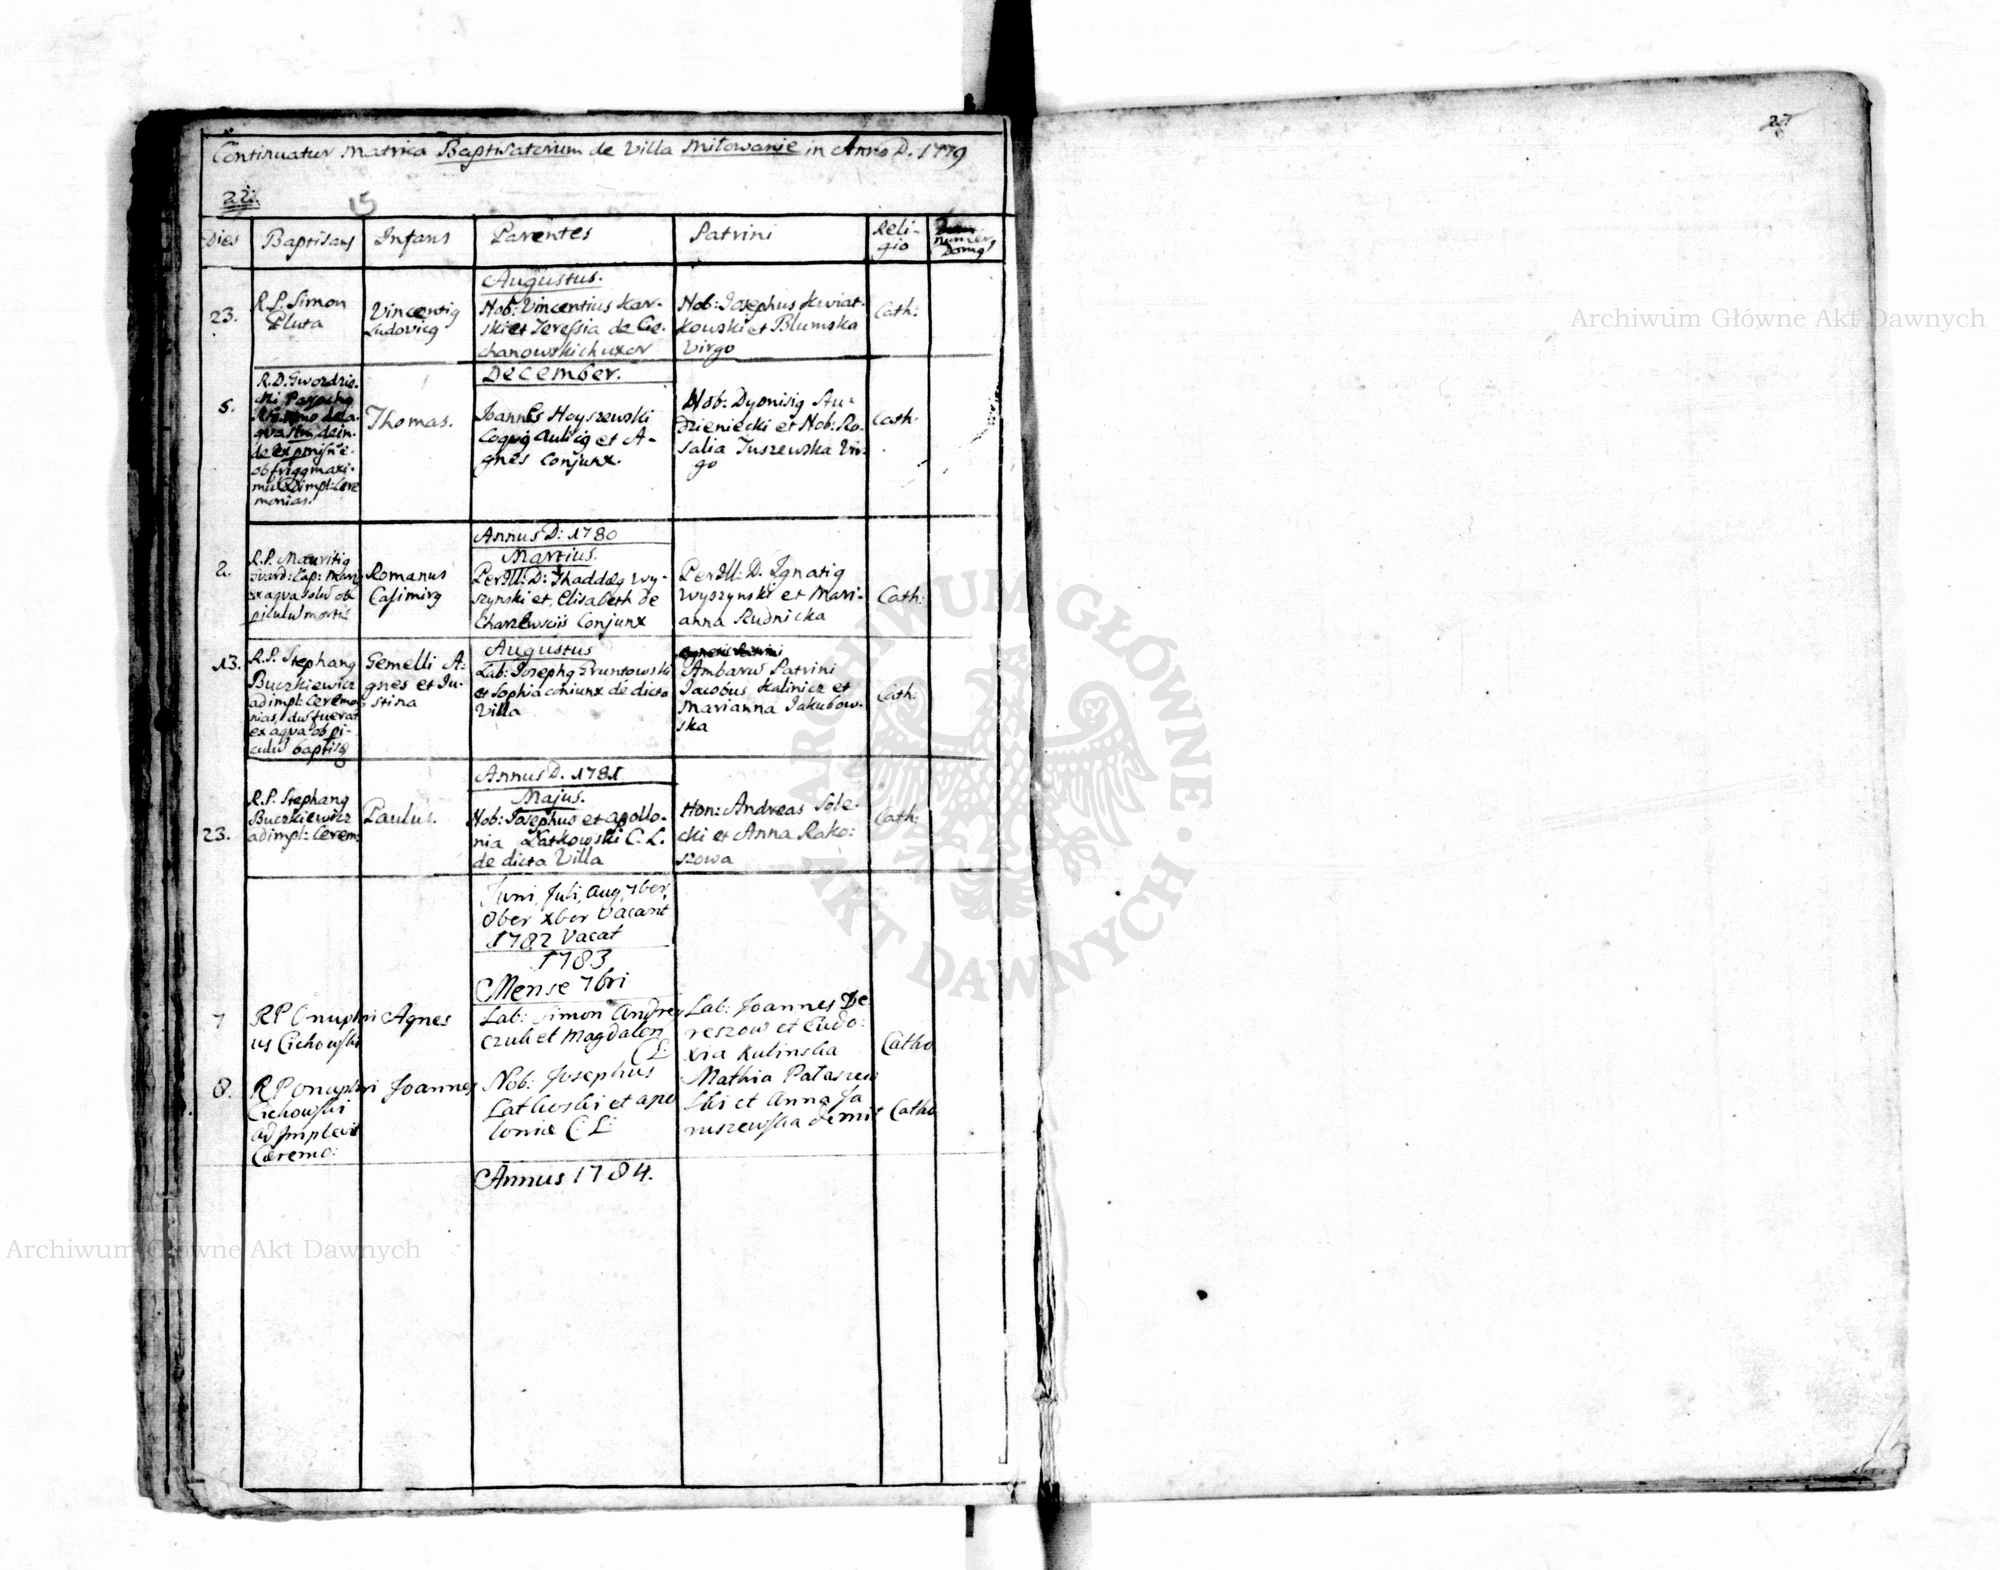 Continuatur Matrica Baptisatorum de Villa Miłowanie in Anno D. 1779
22.
15
27
Dies
Baptisans
Infans
Parentes
Patrini
Reli-
gio
numer9
Domg
Augustus.
23.
R.P. Simon
Pluta
Vincentig
Ludovicg
Nob: Vincentius Kar-
ski et Teressia de Cie-
chanowskich uxor
Nob: Josephus Kwiat-
kowski et Blumska
Virgo
Cath:
December.
5.
R.D. Gwozdzie-
cki
de in-
de
ob frigg maxi-
mu adimpl: Cere
monias.
Thomas.
Joannes Hoyszewski
Coqvg Aulicg et A-
gnes Conjunx.
Nob: Dyonisig Au-
dzieniecki et Nob: Ro-
salia Juszewska Vir-
go
Cath:
Annus D: 1780
Martius.
2.
R.P. Mauritig
Gvard: Cap: Mari
ex aqva solu ob
piculu mortis
Romanus
Casimirg
PerIll: D: Thaddæg Wy-
szynski et Elisabeth de
Charzewsciis Conjunx
PerIll: D. Ignatig
Wyszynski et Mari-
anna Rudnicka
Cath:
Augustus
13.
R.P. Stephang
Buczkiewicz
adimpl: Ceremo
nias, du fuerat
ex aqva ob pi-
culu baptisg
Gemelli A-
gnes et Ju-
stina
Lab: Josephg Gruntowski
et Sophia coniunx de dicta
Villa
Ambaru Patrini
Jacobus Kalinicz et
Marianna Jakubow-
ska
Cath:
Annus D. 1781
Majus.
23.
R.P. Stephang
Buczkiewicz
adimpl: Cerem:
Paulus.
Nob: Josephus et Apollo-
nia Łatkowski C. L.
de dicta Villa
Hon: Andreas Sole-
cki et Anna Rako:
szowa
Cath:
Juni, Juli, Aug, 7ber,
8ber xber Vacant
1782 Vacat
1783
Mense 7bri
7
RP Onuphri
us Cichowski
Agnes
Lab: Simon Andrey
czuk et Magdalen
CL:
Lab: Joannes De
reszow et Eudo:
xia Kulinska
Catho
8.
RP Onuphri
Cichowski
ad Implevit
Cæremo:
Joannes
Nob: Josephus
Latkoski et apo
lonia C: L:
Mathia Pataszew
ski et Anna Ja
ruszewska
Catho
Annus 1784.
Archiwum Główne Akt Dawnych
Archiwum Główne Akt Dawnych
ARCHIWUM GŁÓWNE AKT DAWNYCH